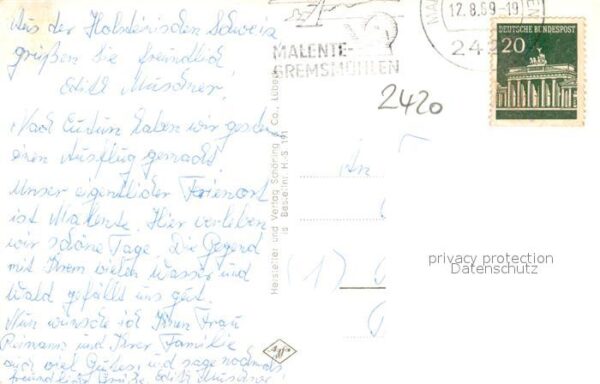 Aus der Holsteinischen Schweiz
grüßen Sie freundlich
Edith Müschner,
Nach Eutin haben wir gestern
einen Ausflug gemacht.
Unser eigentlicher Ferienort
ist Malente. Hier verleben
wir schöne Tage. Die Gegend
mit Ihrem vielen Wasser und
Wald gefällt uns gut.
Nun wünsche ich Ihnen Frau
und Ihrer Familie
auch viel Gutes, und sage nochmals
freundliche Grüße. Edith Müschner
Hersteller und Verlag Schöning & Co., Lübeck
Bestellnr. H-S 191
Agfa
MALENTE-
GREMSMÜHLEN
12.8.69-19
242
DEUTSCHE BUNDESPOST
20
2420
An
(1)
privacy protection
Datenschutz